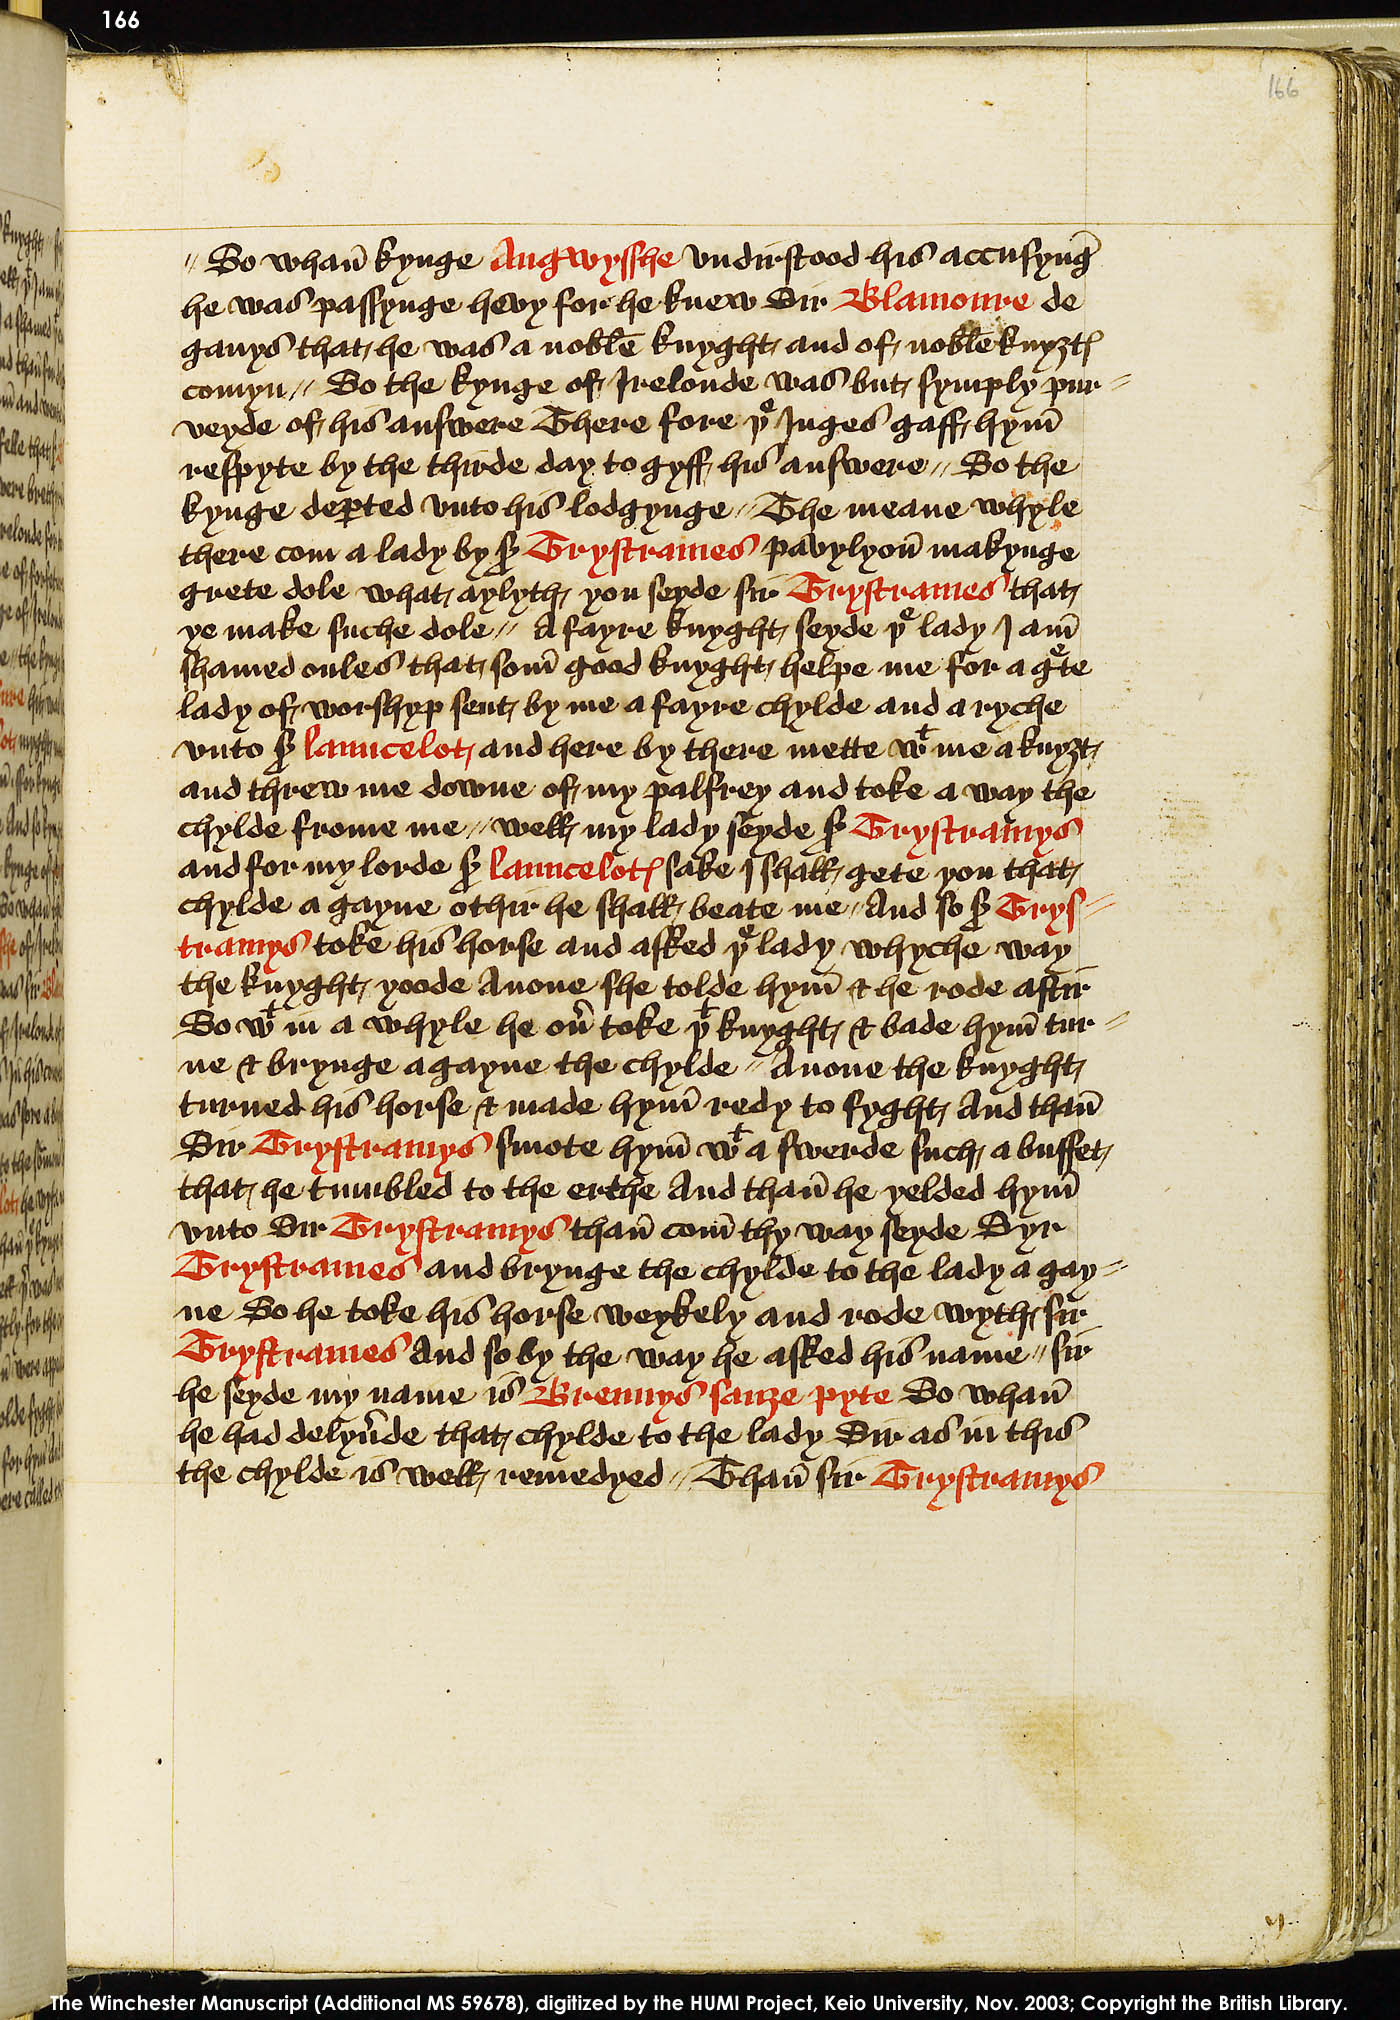 166
166
// So whan̄ kynge Angwysshe vndirstood his accusynḡ
he was passynge hevy for he knew Sir Blamoure de
ganys that he was a noble knyght and of noble knyȝtꝭ
comyn // So the kynge of Irelonde was but symply pur=
veyde of his answere There fore þͤ Juges gaff hym̄
respyte by the thirde day to gyff his answere // So the
kynge deꝑted vnto his lodgynge // The meane whyle
there com a lady by sͬ Trystrames pavylyon̄ makynge
grete dole what aylyth you seyde sir Trystrames that
ye make suche dole // A fayre knyght seyde þͤ lady I am̄
shamed onles that som̄ good knyght helpe me for a gͤte
lady of worshyp sent by me a fayre chylde and a ryche
vnto sͬ launcelot and here by there mette wͭ me a knyȝt
and threw me downe of my palfrey and toke a way the
chylde frome me // well my lady seyde sͬ Trystramys
and for my lorde sͬ launcelotꝭ sake I shall gete you that
chylde a gayne othir he shall beate me // And so sͬ Trys=
tramys toke his horse and asked þͤ lady whyche way
the knyght yoode Anone she tolde hym̄ & he rode aftir
So wͭ in a whyle he ou̓ toke þͭ knyght & bade hym̄ tur=
ne & brynge agayne the chylde // Anone the knyght
turned his horse & made hym̄ redy to fyght And than̄
Sir Trystramys smote hym̄ wͭ a swerde such a buffet
that he tumbled to the erthe And than̄ he yelded hym̄
vnto Sir Trystramys than̄ com̄ thy way seyde Syr
Trystrames and brynge the chylde to the lady a gay=
ne So he toke his horse weykely and rode wyth sir
Trystrames And so by the way he asked his name // sir
he seyde my name is Brennys sanze pyte So whan̄
he had delyu̓de that chylde to the lady Sir as in this
the chylde is well remedyed // Than̄ sir Trystramys
The Winchester Manuscript (Additional MS 59678), digitized by the HUMI Project, Keio University, Nov. 2003; Copyright the British Library.